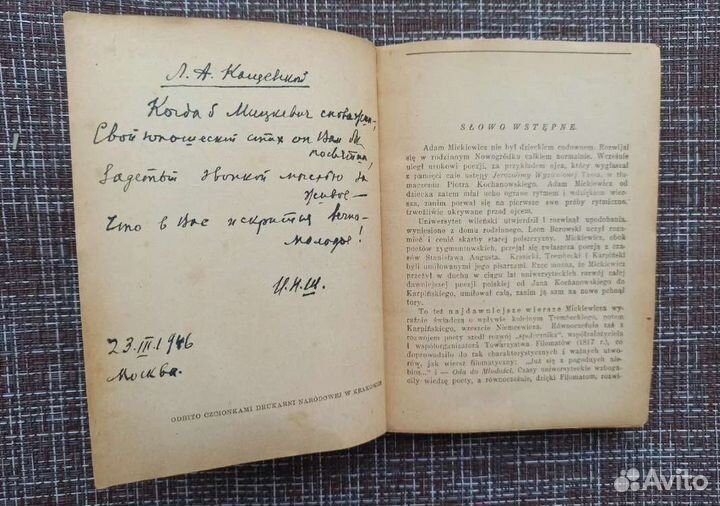 Л. А. Кащевской
Когда б Мицкевич снова жил,
Свой юношеский стих он Вам бы
посвятил,
Задетый звонкой мыслью за
живое —
Что в Вас искрится вечно-
молодое!
И.Н.Ш.
23.III.1946
Москва.
ODBITO CZCIONKAMI DRUKARNI NARODOWEJ W KRAKOWIE
SŁOWO WSTĘPNE.
Adam Mickiewicz nie był dzieckiem cudownem. Rozwijał
się w rodzinnym Nowogródku całkiem normalnie. Wcześnie
uległ urokowi poezji, za przykładem ojca, który wygłaszał
z pamięci całe ustępy Jerozolimy Wyzwolonej Tassa, w tłu-
maczeniu Piotra Kochanowskiego. Adam Mickiewicz od
dziecka zatem miał ucho ograne rytmem i wdziękiem wier-
sza, zanim porwał się na pierwsze swe próby rytmiczne,
trwożliwie ukrywane przed ojcem.
Uniwersytet wileński utwierdził i rozwinął upodobania,
wyniesione z domu rodzinnego. Leon Borowski uczył rozu-
mieć i cenić skarby starej polszczyzny. Mickiewicz, obok
poetów zygmuntowskich, przejął się zwłaszcza poezją z cza-
sów Stanisława Augusta. Krasicki, Trembecki i Karpiński
byli umiłowanymi jego pisarzami. Rzec można, że Mickiewicz
przeżył w duchu w ciągu lat uniwersyteckich rozwój całej
dawniejszej poezji polskiej od Jana Kochanowskiego do
Karpińskiego, umiłował całą, zanim ją sam na nowe pchnął
tory.
To też najdawniejsze wiersze Mickiewicza wy-
raźnie świadczą o wpływie kolejnym Trembeckiego, potem
Karpińskiego, wreszcie Niemcewicza. Równocześnie zaś z
rozwojem poety szedł rozwój „społecznika", współzałożyciela
i współorganizatora Towarzystwa Filomatów (1817 r.), co
doprowadziło do tak charakterystycznych i ważnych utwo-
rów, jak wiersz filomatyczny: „Już się z pogodnych nie-
bios..." i — Oda do Młodości. Czasy uniwersyteckie wzboga-
ciły wiedzę poety, a równocześnie, dzięki Filomatom, rozwi-
Avito